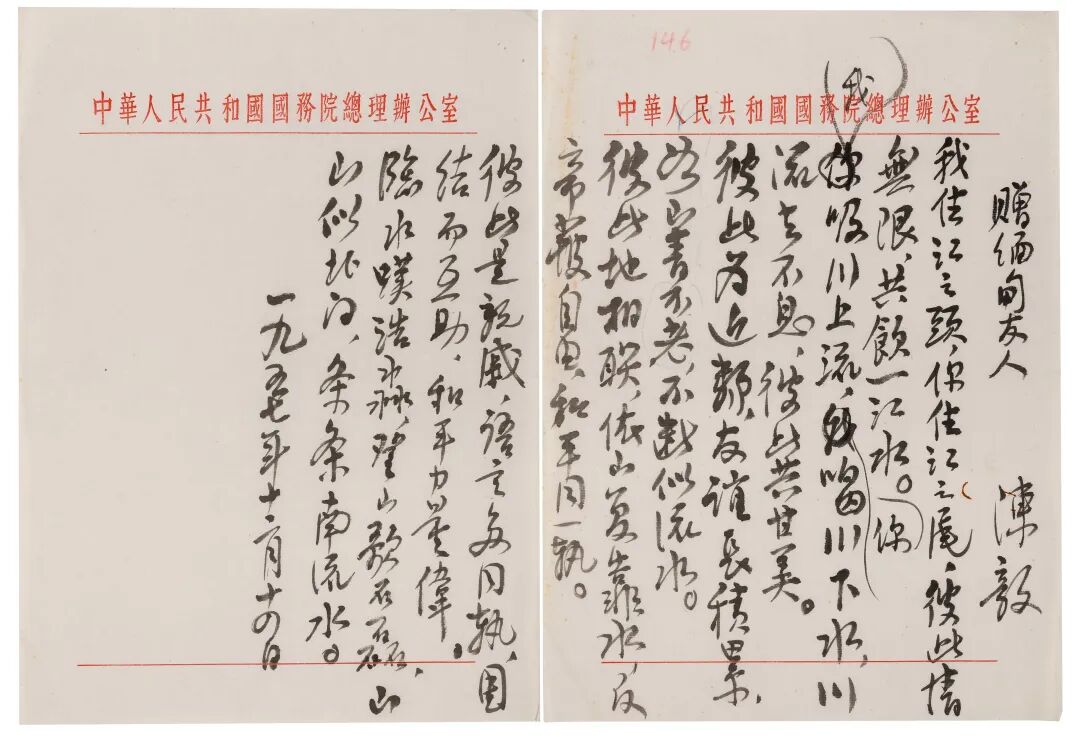 146
中華人民共和國國務院總理辦公室
赠缅甸友人
陳毅
我住江之頭，你住江之尾，彼此情
無限，共飲一江水。
我吸川上流，你喝川下水，川
流去不息，彼此共甘美。
彼此为近鄰，友谊長積累，
如山青不老，不断似流水。
彼此地相联，依山复靠水，反
帝獲自由，和平同一軌。
中華人民共和國國務院總理辦公室
彼此是親戚，語言多同軌，团
結而互助，和平力量偉。
臨水嘆浩淼，登山歌石磊，山
山似北向，条条南流水。
一九五七年十二月十四日